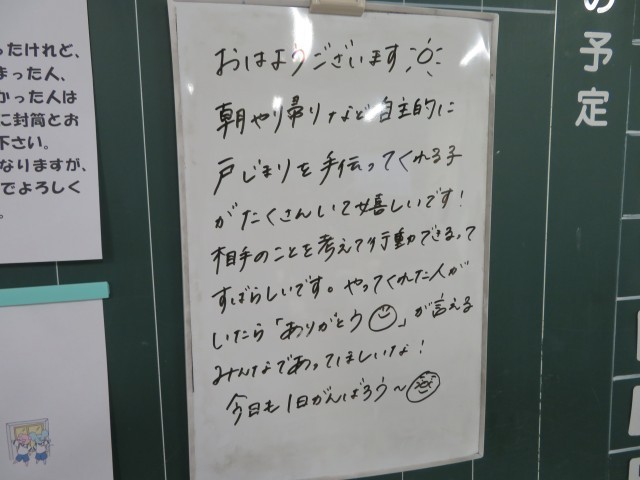 ったけれど、
まった人、
かった人は
に封筒とお
下さい。
なりますが、
でよろしく
。
おはようございます
朝やり帰りなど自主的に
戸じまりを手伝ってくれる子
がたくさんいて嬉しいです!
相手のことを考えて行動できるって
すばらしいです。やってくれた人が
いたら「ありがとう😊」が言える
みんなであってほしいな!
今日も1日がんばろう〜
の予定